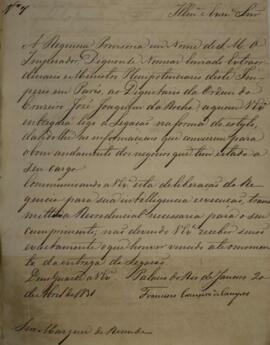 Nº 7
Illmo. Exmo. Snr.
A Regencia Provisoria em Nome de S. M. O
Imperador, Dignou-se Nomear Enviado Extraor
dinario e Ministro Plenipotenciario deste Im
perio em Paris, ao Dignitario da Ordem do
Cruzeiro José Joaquim da Rocha, a quem V Exa.
entregará logo a Legação na forma do estylo,
dando lhe as informações que convierem para
o bom andamento dos negocios que tem estado a
seu cargo.
Communicando a V Exa. esta deliberação da Re
gencia para sua intelligencia e execução, trans
metto a Recredencial necessaria para o seu
cumprimento, não devendo V Exa. receber senão
exactamente o que houver vencido até o momen
to da entrega da Legação.
Deos Guarde a V Exa. Palacio do Rio de Janeiro 20
de Abril de 1831
Francisco Carneiro de Campos
Snr. Marquez de Rezende